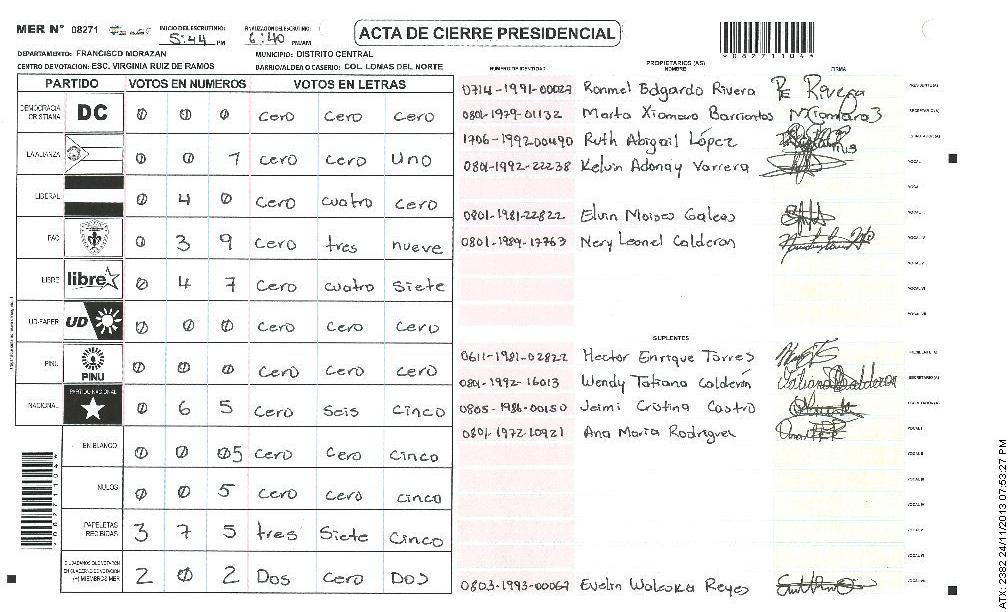 MER N° 08271 INICIO DEL ESCRUTINIO: 5:44 PM FINALIZACION DEL ESCRUTINIO: 6:40 PM/AM
ACTA DE CIERRE PRESIDENCIAL
*08271104*
DEPARTAMENTO: FRANCISCO MORAZAN MUNICIPIO: DISTRITO CENTRAL
CENTRO DE VOTACION: ESC. VIRGINIA RUIZ DE RAMOS BARRIO/ALDEA O CASERIO: COL. LOMAS DEL NORTE
PARTIDO VOTOS EN NUMEROS VOTOS EN LETRAS
DEMOCRACIA CRISTIANA DC 0 0 0 cero cero cero
LA ALIANZA 0 0 1 cero cero uno
LIBERAL 0 4 0 cero cuatro cero
PAC 0 3 9 cero tres nueve
LIBRE libre 0 4 7 cero cuatro siete
UD-FAPER UD 0 0 0 cero cero cero
PINU PINU 0 0 0 cero cero cero
NACIONAL PARTIDO NACIONAL 0 6 5 cero seis cinco
EN BLANCO 0 0 05 cero cero cinco
NULOS 0 0 5 cero cero cinco
PAPELETAS RECIBIDAS 3 7 5 tres siete cinco
CIUDADANOS QUE VOTARON EN CUADERNO DE VOTACION (+) MIEMBROS MER 2 0 2 Dos cero Dos
NUMERO DE IDENTIDAD PROPIETARIOS (AS) NOMBRE FIRMA
0714-1991-00027 Ronmel Edgardo Rivera RE Rivera PRESIDENTE(A)
0801-1979-01132 Marta Xiomara Barrientos MXiomara3 SECRETARIO(A)
1706-199200490 Ruth Abigail López ESCRUTADOR(A)
0801-1992-22238 Kelvin Adonay Varrera VOCAL I
0801-1981-22822 Elvin Moises Galeas
0801-1989-17763 Nery Leonel Calderon
SUPLENTES
0611-1981-02822 Hector Enrique Torres PRESIDENTE(A)
0801-1992-16013 Wendy Tatiana Calderón Tatiana Calderon SECRETARIO(A)
0805-1986-00150 Jeimi Cristina Castro ESCRUTADOR(A)
0801-1972-10921 Ana Maria Rodriguez VOCAL I
0803-1993-00067 Evelin Waleska Reyes
*08271104*
ATX-2382 24/11/2013 07:53:27 PM